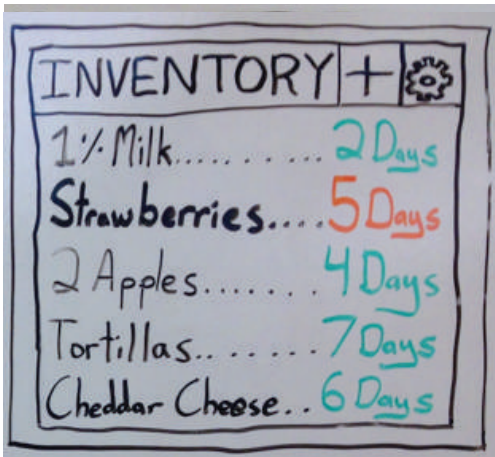 INVENTORY +
1% Milk........... 2 Days
Strawberries.... 5 Days
2 Apples....... 4 Days
Tortillas....... 7 Days
Cheddar Cheese.. 6 Days